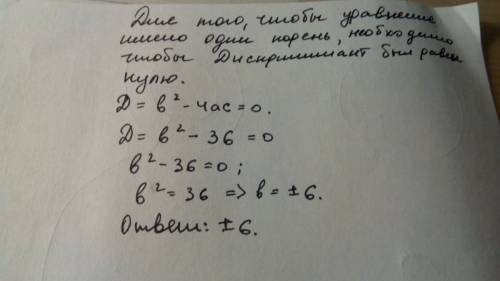 Для того, чтобы уравнение
имело один корень, необходимо
чтобы Дискриминант был равен
нулю.
D = b² - 4ac = 0.
D = b² - 36 = 0
b² - 36 = 0 ;
b² = 36 => b = ± 6.
Ответ: ± 6.